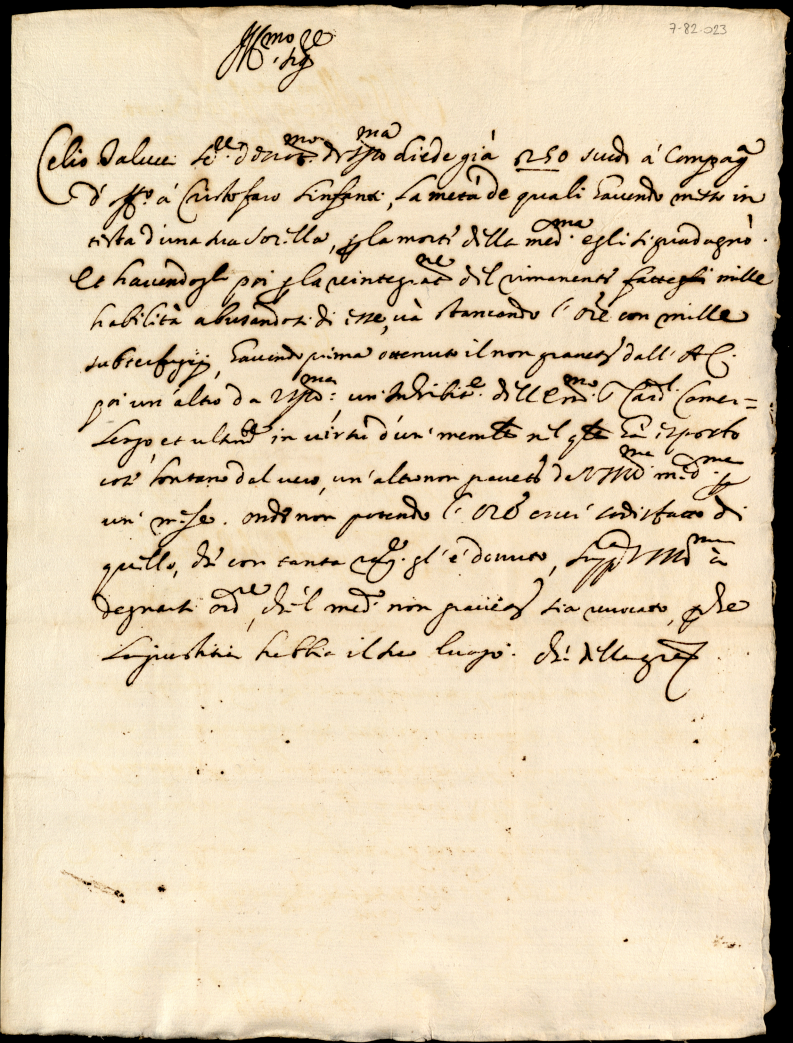 7-82-023
Ill.mo Sig.re
Celio Saluce: Se.re deuot.mo di V.S. Ill.ma diede già 250 scudi à Compag.
d' off.o à Cristofaro Sinfanti, la metà de quali hauendo messo in
testa d'una sua Sorella, p la morte della med.ma egli si guadagnò.
Et hauendogli poi p la reintegrat.ne del rimanente fattegli mille
habilità abusandosi di esse, uà stancando l'Ore con mille
subterfugij, hauendo prima ottenuto il non grauet.r dall' A.C.
poi un' altro da V.S. Ill.ma: un' Inhibit.e dell' Em.mo S. Card.l Camer=
lengo et ultam.te in uirtù d'un' mem.le nel qle hà esposto
cose lontano dal uero, un' altro non grauet.r da V.S. Ill.ma med.ma p
un' mese. onde non potendo l' Ore esser sodisfatto di
quello, che con tanta rag.e gl' è douuto, supp.ca V.S. Ill.ma à
degnarsi ord.re, che 'l med.o non grauet.r sia reuocato, p che
la giustitia habbia il suo luogo. Che della gra.